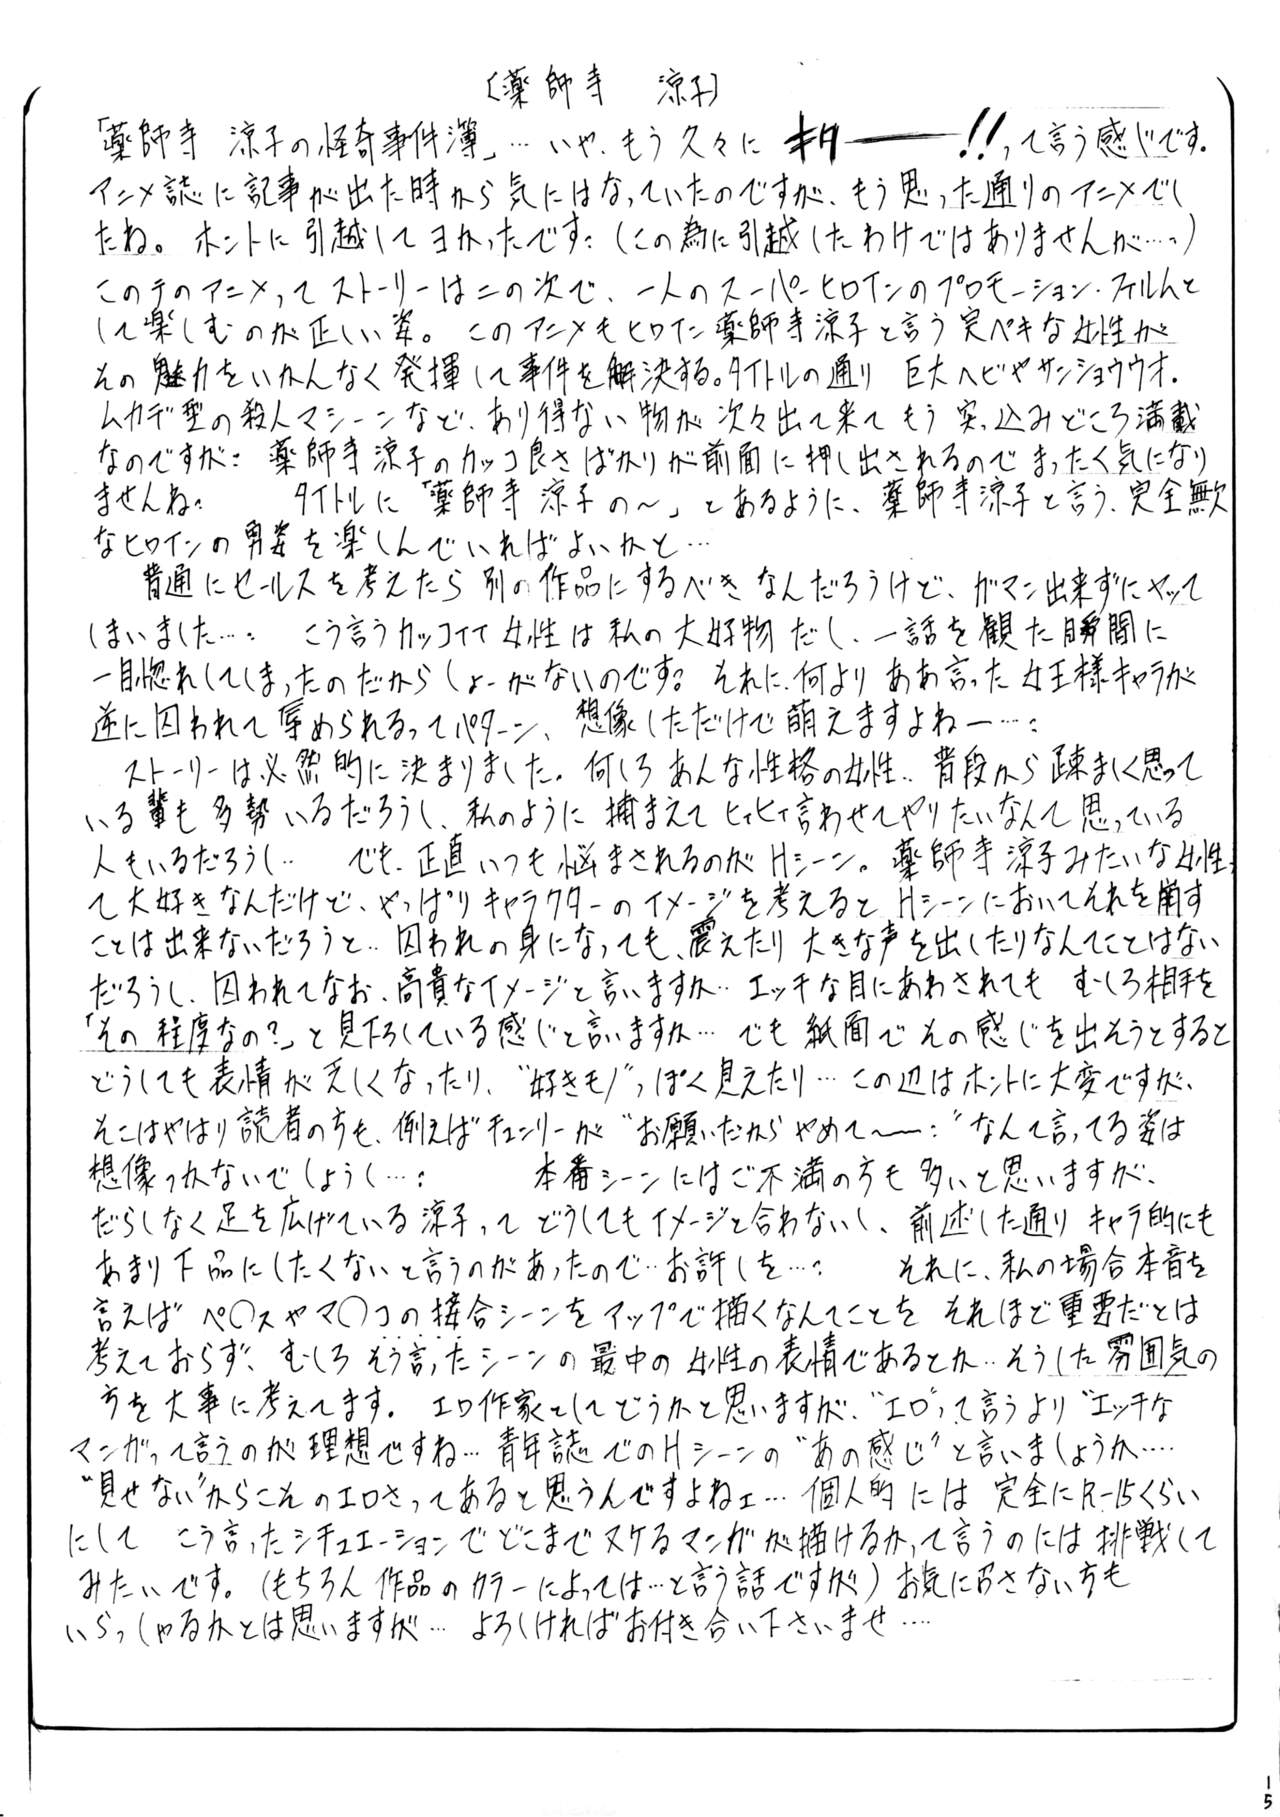 〔薬師寺　涼子〕
「薬師寺　涼子の怪奇事件簿」… いや、もう久々に キターーー!!って言う感じです。
アニメ誌に記事が出た時から気にはなっていたのですが、もう思った通りのアニメでし
たね。ホントに引越してヨかったです:（この為に引越したわけではありませんが…:）
このテのアニメってストーリーは二の次で、一人のスーパーヒロインのプロモーション・フィルムと
して楽しむのが正しい姿。このアニメもヒロイン薬師寺涼子と言う完ペキな女性が
その魅力をいかんなく発揮して事件を解決する。タイトルの通り 巨大ヘビやサンショウウオ、
ムカデ型の殺人マシーンなど、あり得ない物が次々出て来てもう突っ込みどころ満載
なのですが: 薬師寺涼子のカッコ良さばかりが前面に押し出されるのでまったく気になり
ませんね: タイトルに「薬師寺涼子の～」とあるように、薬師寺涼子と言う、完全無欠
なヒロインの勇姿を楽しんでいればよいかと…
普通にセールスを考えたら別の作品にするべきなんだろうけど、ガマン出来ずにヤッて
しまいました…: こう言うカッコイイ女性は私の大好物だし、一話を観た瞬間に
一目惚れしてしまったのだからしょーがないのです: それに、何よりああ言った女王様キャラが
逆に囚われて辱められるってパターン、想像しただけで萌えますよねー…:
ストーリーは必然的に決まりました。何しろあんな性格の女性‥ 普段から疎ましく思って
いる輩も多勢いるだろうし、私のように捕まえてヒィヒィ言わせてやりたいなんて思っている
人もいるだろうし‥ でも、正直いつも悩まされるのがHシーン。薬師寺涼子みたいな女性っ
て大好きなんだけど、やっぱりキャラクターのイメージを考えるとHシーンにおいてそれを崩す
ことは出来ないだろうと‥ 囚われの身になっても、震えたり大きな声を出したりなんてことはない
だろうし、囚われてなお、高貴なイメージと言いますか‥ エッチな目にあわされても むしろ相手を
「その程度なの?」と見下ろしている感じと言いますか… でも紙面でその感じを出そうとすると
どうしても表情が乏しくなったり、“好きモノ”っぽく見えたり… この辺はホントに大変ですが、
そこはやはり読者の方も、例えばチュンリーが“お願いだからやめて～～:”なんて言ってる姿は
想像つかないでしょうし…: 本番シーンにはご不満の方も多いと思いますが、
だらしなく足を広げている涼子ってどうしてもイメージと合わないし、前述した通りキャラ的にも
あまり下品にしたくないと言うのがあったので‥お許しを…: それに、私の場合本音を
言えばペ〇スやマ〇コの接合シーンをアップで描くなんてことを それほど重要だとは
考えておらず、むしろそう言ったシーンの最中の女性の表情であるとか‥そうした雰囲気の
方を大事に考えてます。エロ作家としてどうかと思いますが、“エロ”って言うより“エッチな
マンガって言うのが理想ですね… 青年誌でのHシーンの“あの感じ”と言いましょうか‥‥
“見せない”からこそのエロさってあると思うんですよねェ… 個人的には 完全にR-15くらい
にして こう言ったシチュエーションでどこまでヌケるマンガが描けるかって言うのには挑戦して
みたいです。（もちろん作品のカラーによっては…と言う話ですが）お気に召さない方も
いらっしゃるかとは思いますが… よろしければお付き合い下さいませ‥‥
15